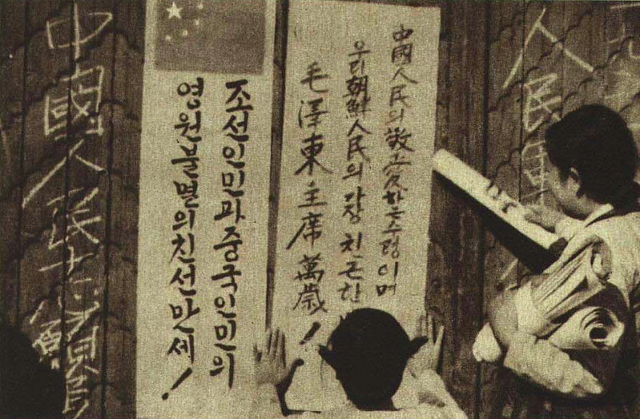 人民軍
中國人民의 敬愛하는 수령이며
우리 朝鮮人民의 가장 친근한
毛澤東主席 萬歲!
조선인민과 중국인민의
영원불멸의 친선만세!
中國人民志願